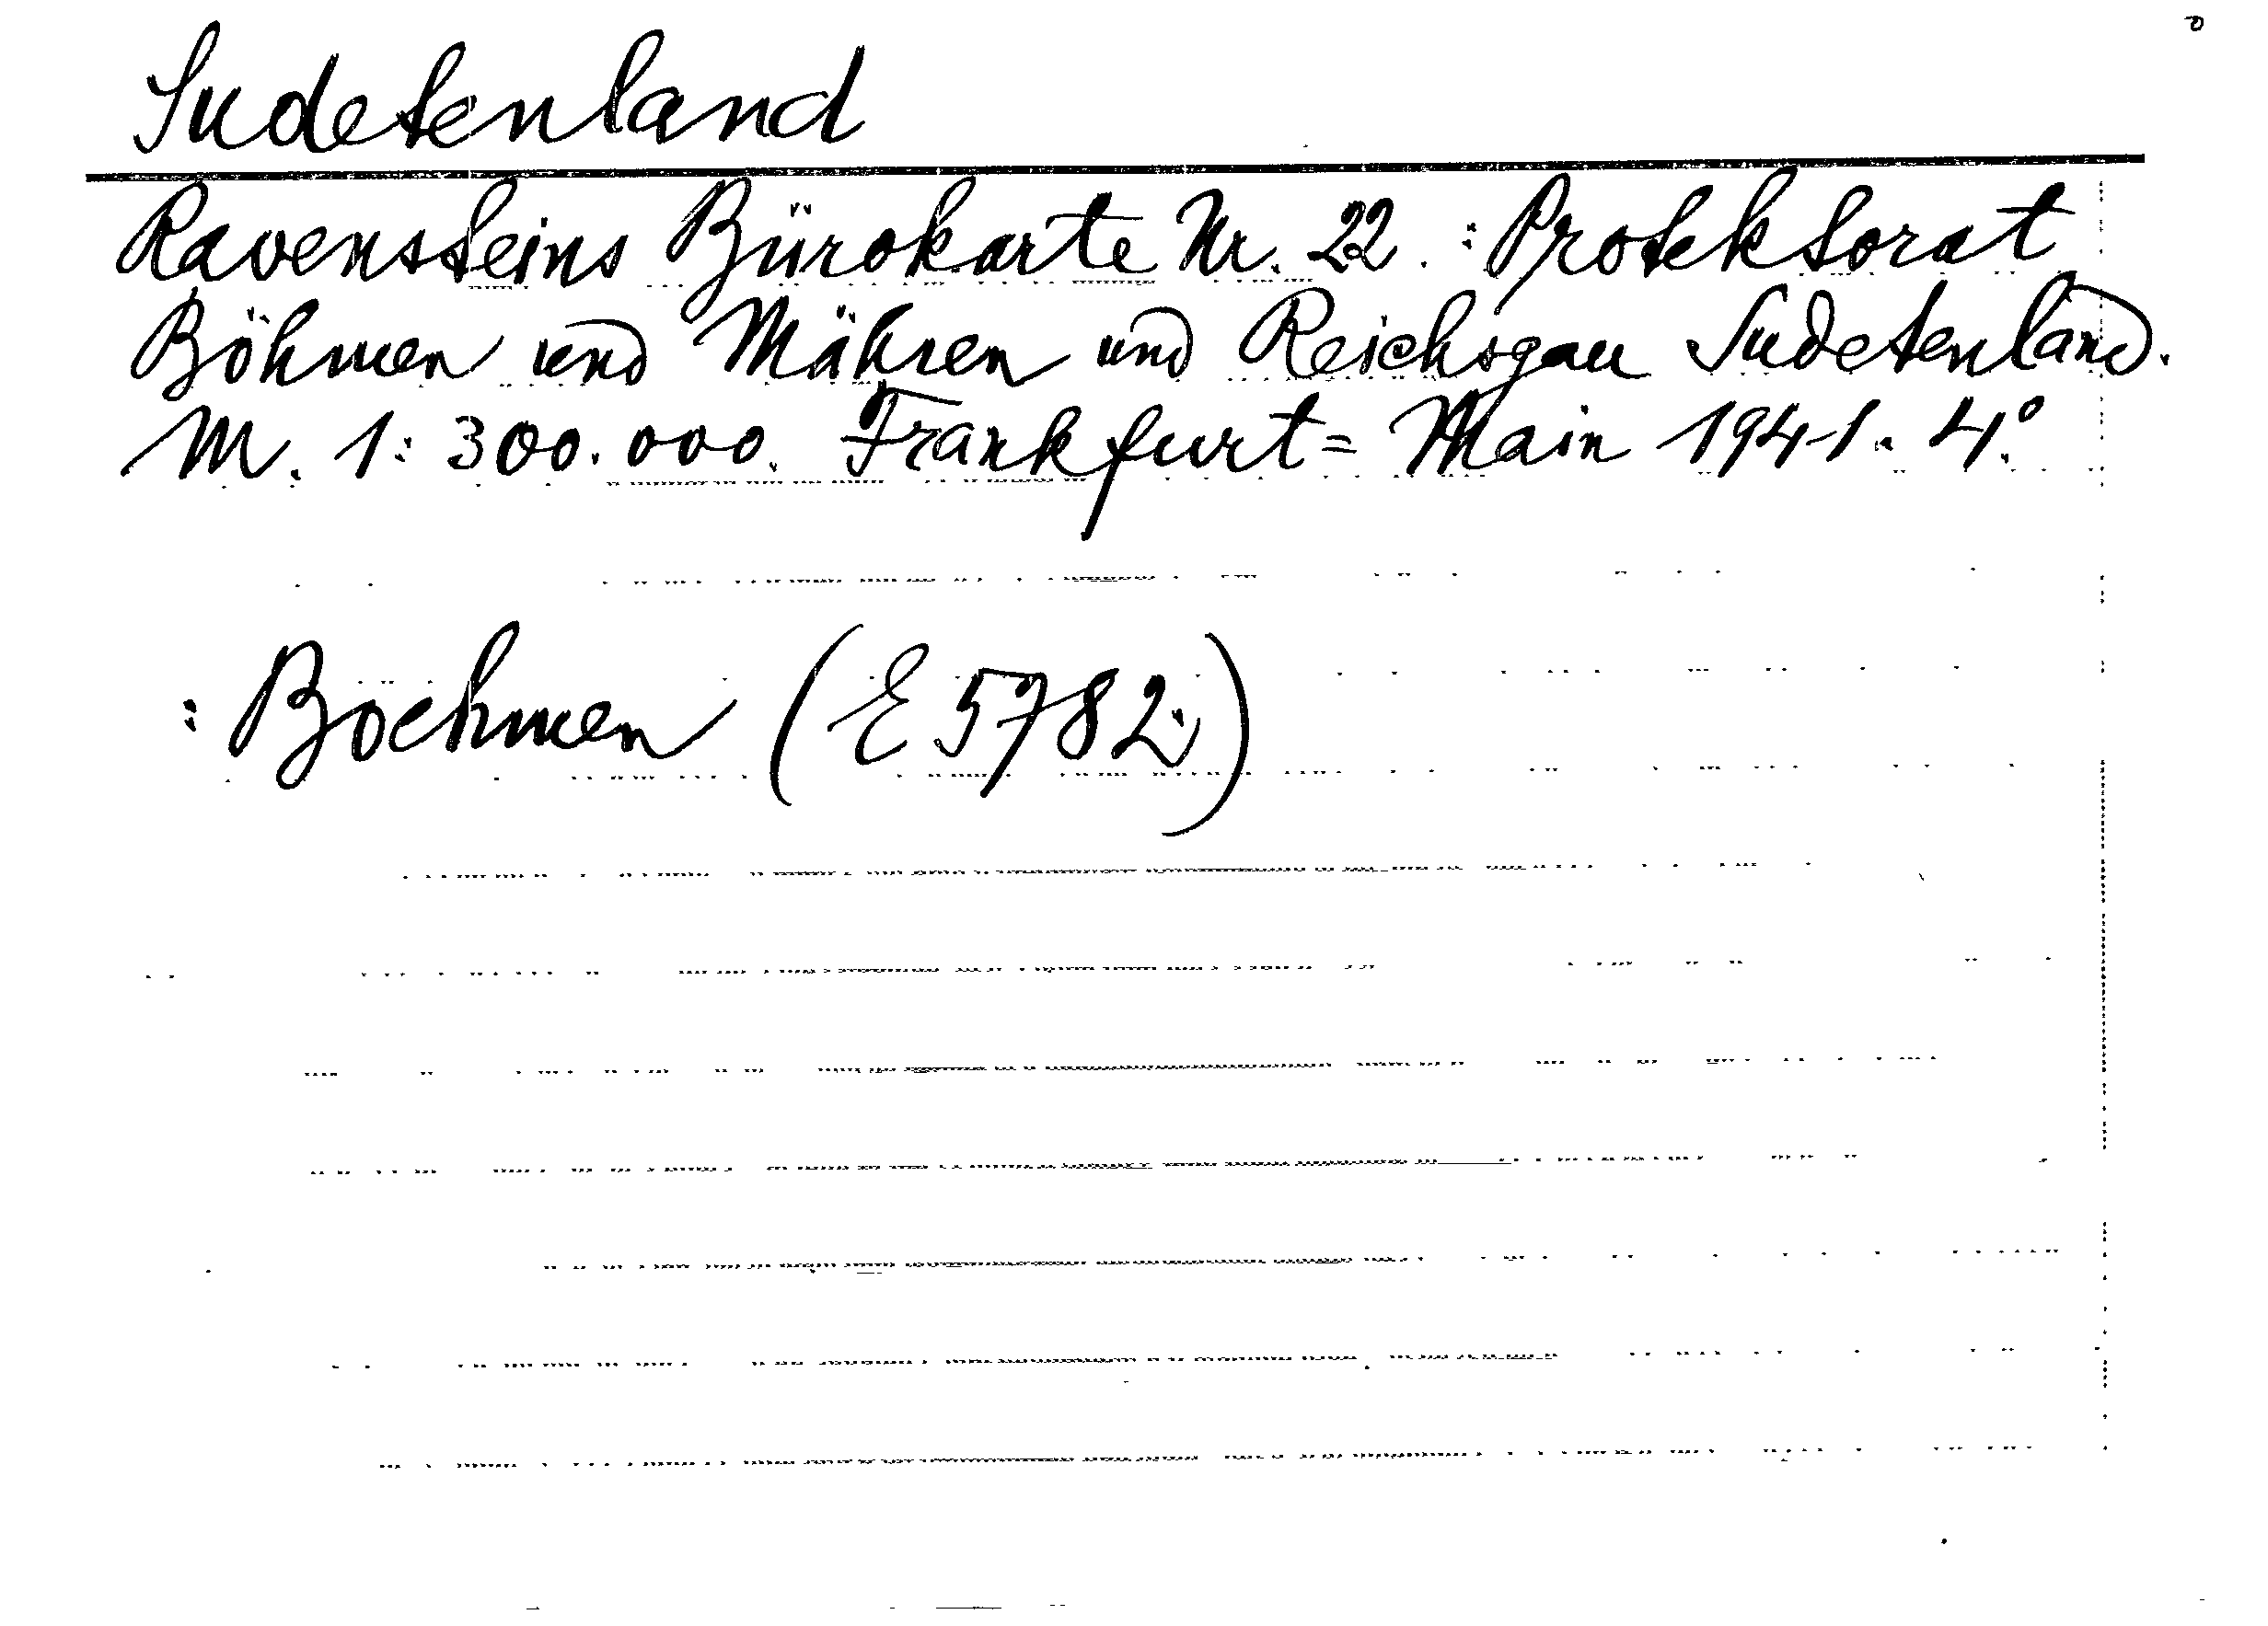 Sudetenland
Ravensteins Bürokarte Nr. 22. : Protektorat
Böhmen und Mähren und Reichsgau Sudetenland.
M. 1:300.000. Frankfurt=Main 1941. 4°.
: Boehmen (E 5782.)